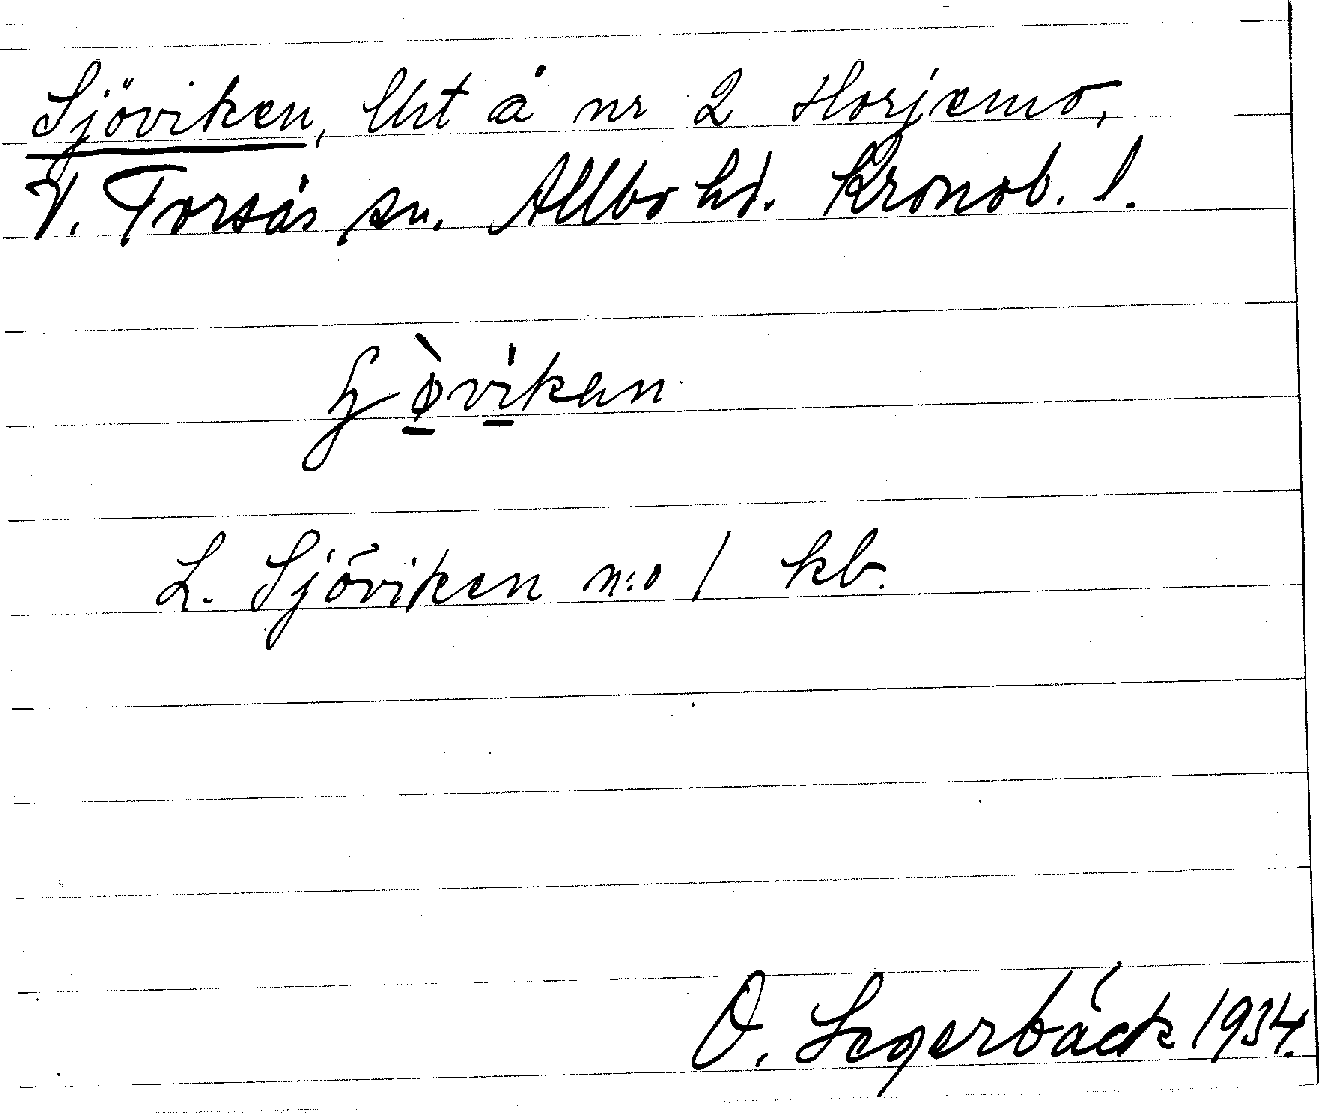 Sjöviken, lht å nr 2 Horjemo,
V. Torsås sn. Allbo hd. Kronob. l.
ɧø̀víkan
L. Sjöviken n:o 1 kb.
O. Segerbäck 1934.